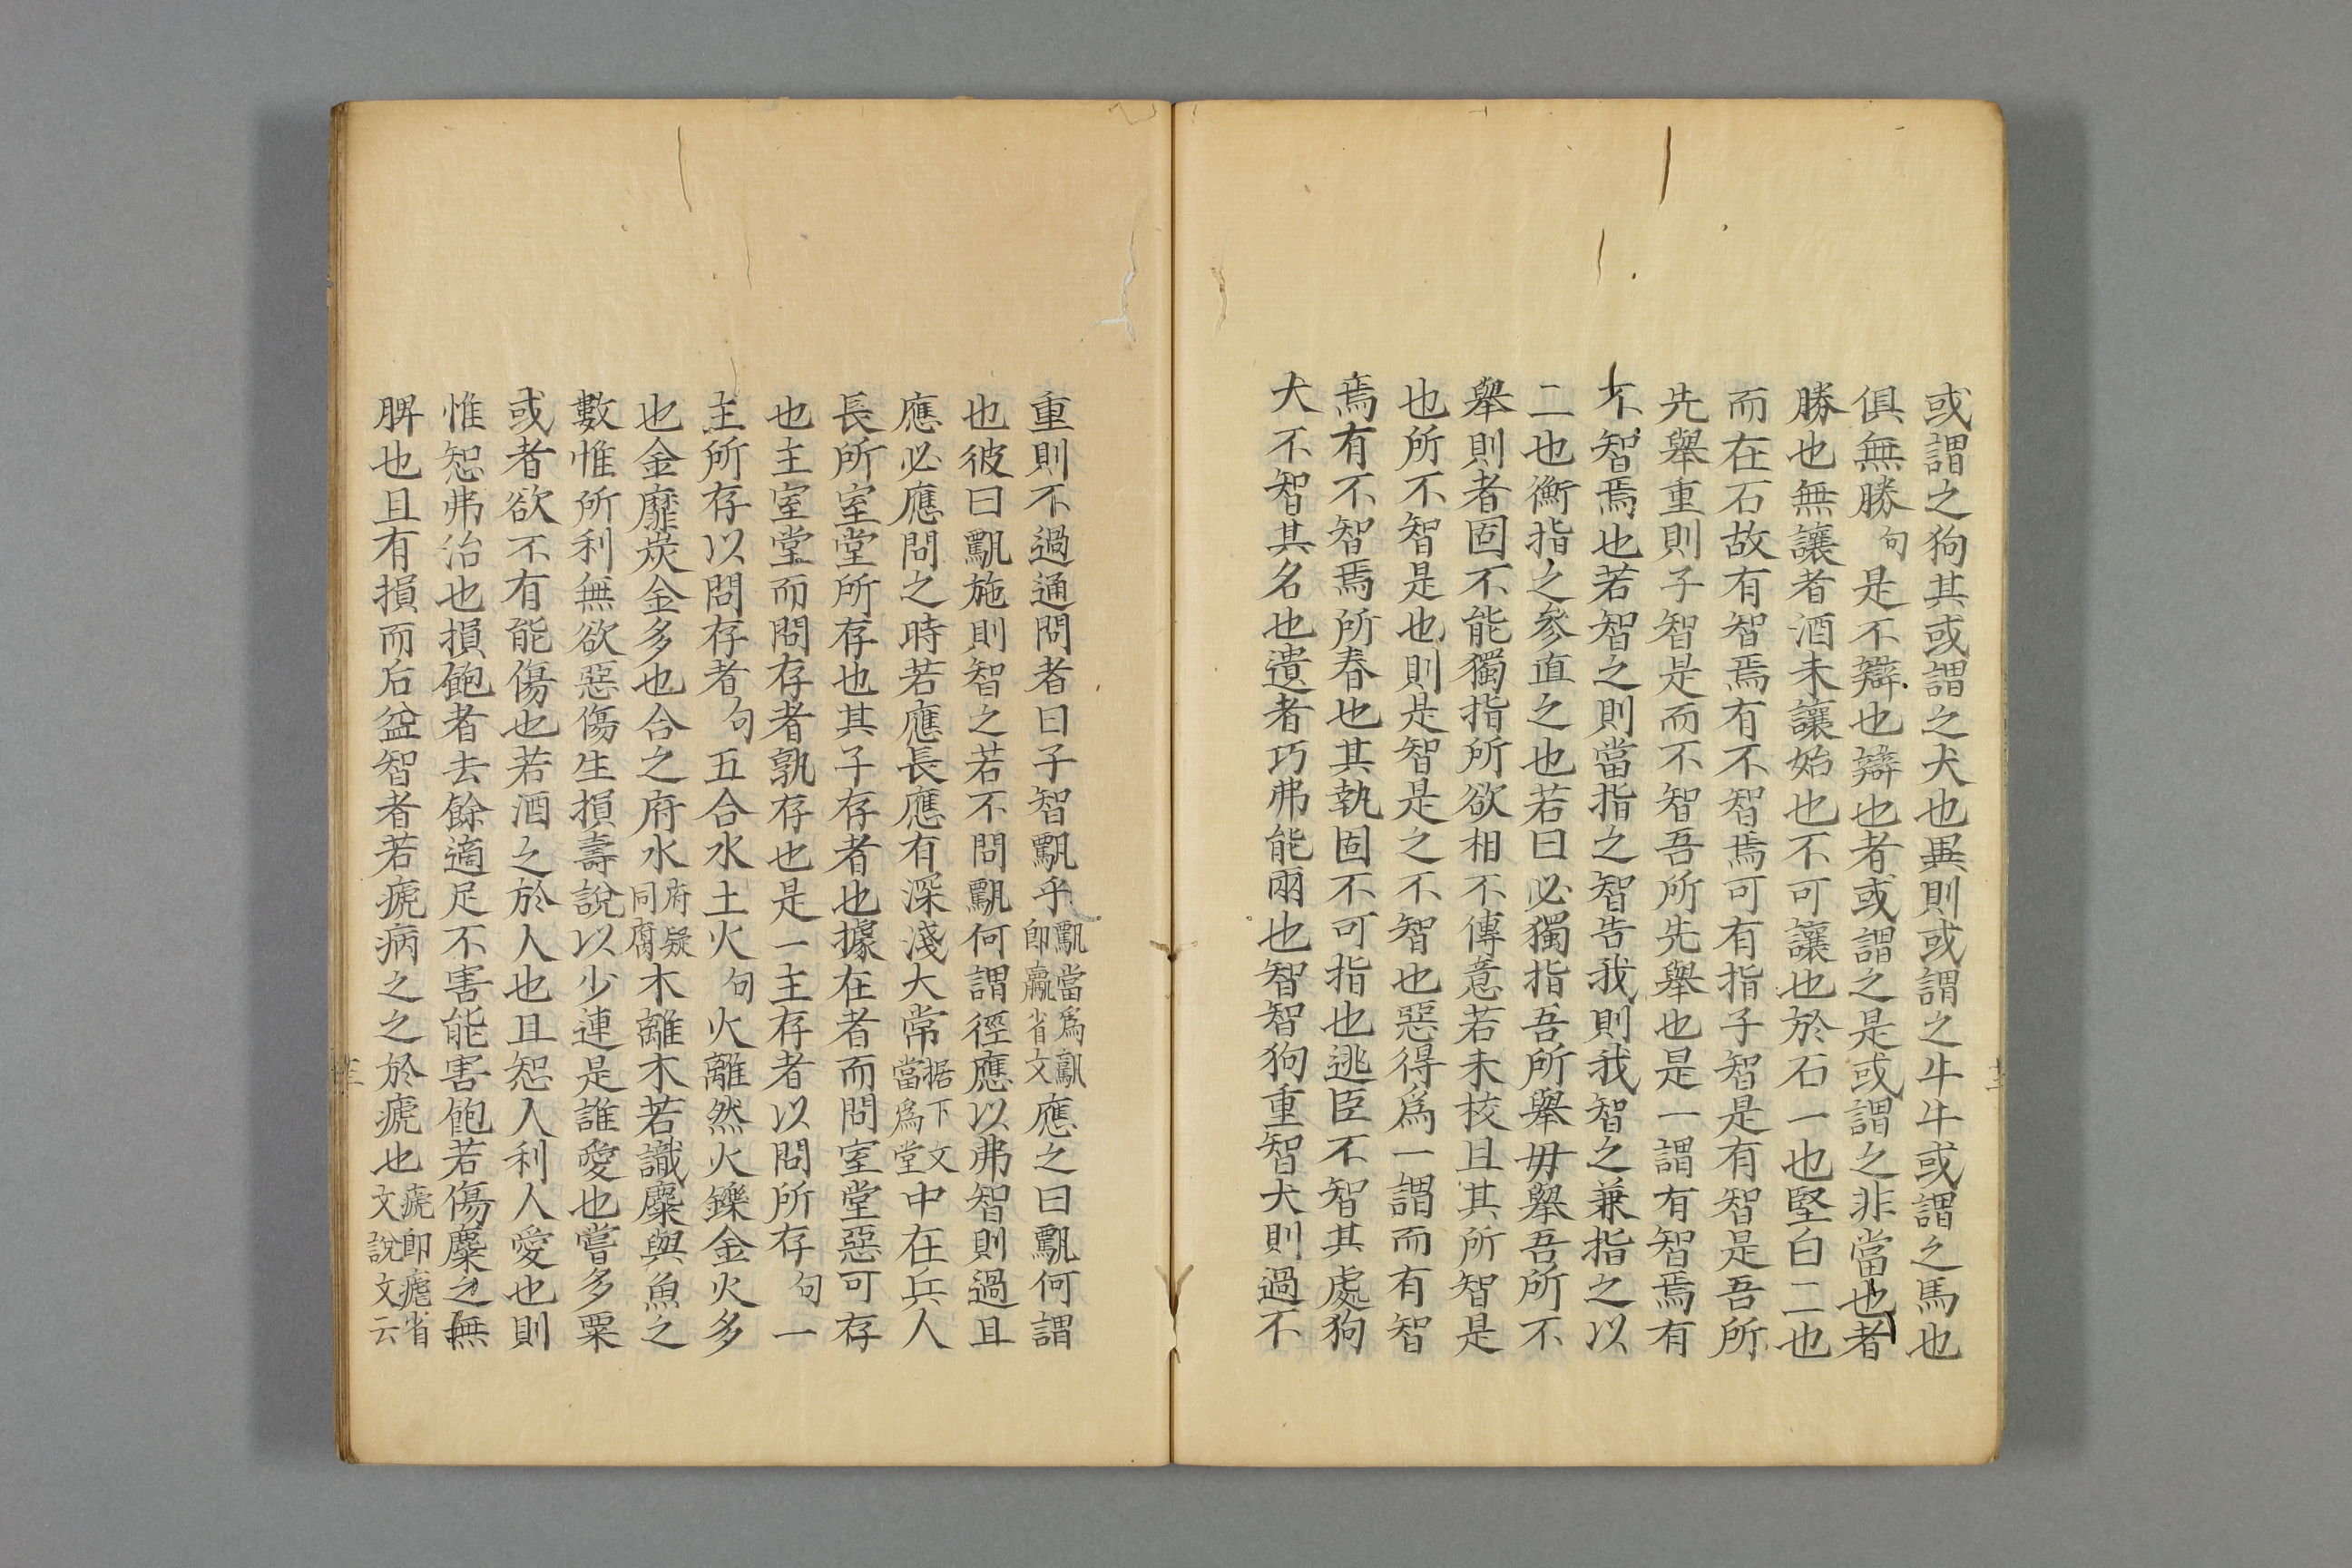 或謂之狗其或謂之犬也異則或謂之牛牛或謂之馬也
俱無勝句是不辯也辯也者或謂之是或謂之非當也者
勝也無讓者酒未讓始也不可讓也於石一也堅白二也
而在石故有智焉有不智焉可有指子智是有智是吾所
先舉重則子智是而不智吾所先舉也是一謂有智焉有
不智焉也若智之則當指之智告我則我智之兼指之以
二也衡指之參直之也若曰必獨指吾所舉毋舉吾所不
舉則者固不能獨指所欲相不傳意若未校且其所智是
也所不智是也則是智是之不智也惡得為一謂而有智
焉有不智焉所春也其執固不可指也逃臣不智其處狗
犬不智其名也遺者巧弗能兩也智智狗重智犬則過不
重則不過通問者曰子智䮷乎䮷當爲䮷即驘省文應之曰䮷何謂
也彼曰䮷施則智之若不問䮷何謂徑應以弗智則過且
應必應問之時若應長應有深淺大常据下文當爲堂中在兵人
長所室堂所存也其子存者也據在者而問室堂惡可存
也主室堂而問存者孰存也是一主存者以問所存句一
主所存以問存者句五合水土火句火離然火鑠金火多
也金靡炭金多也合之府水府疑同腐木離木若識麋與魚之
數惟所利無欲惡傷生損壽說以少連是誰愛也嘗多粟
或者欲不有能傷也若酒之於人也且恕人利人愛也則
惟恕弗治也損飽者去餘適足不害能害飽若傷麋之無
脾也且有損而后益智者若㾧病之之於㾧也㾧即瘧省文說文云